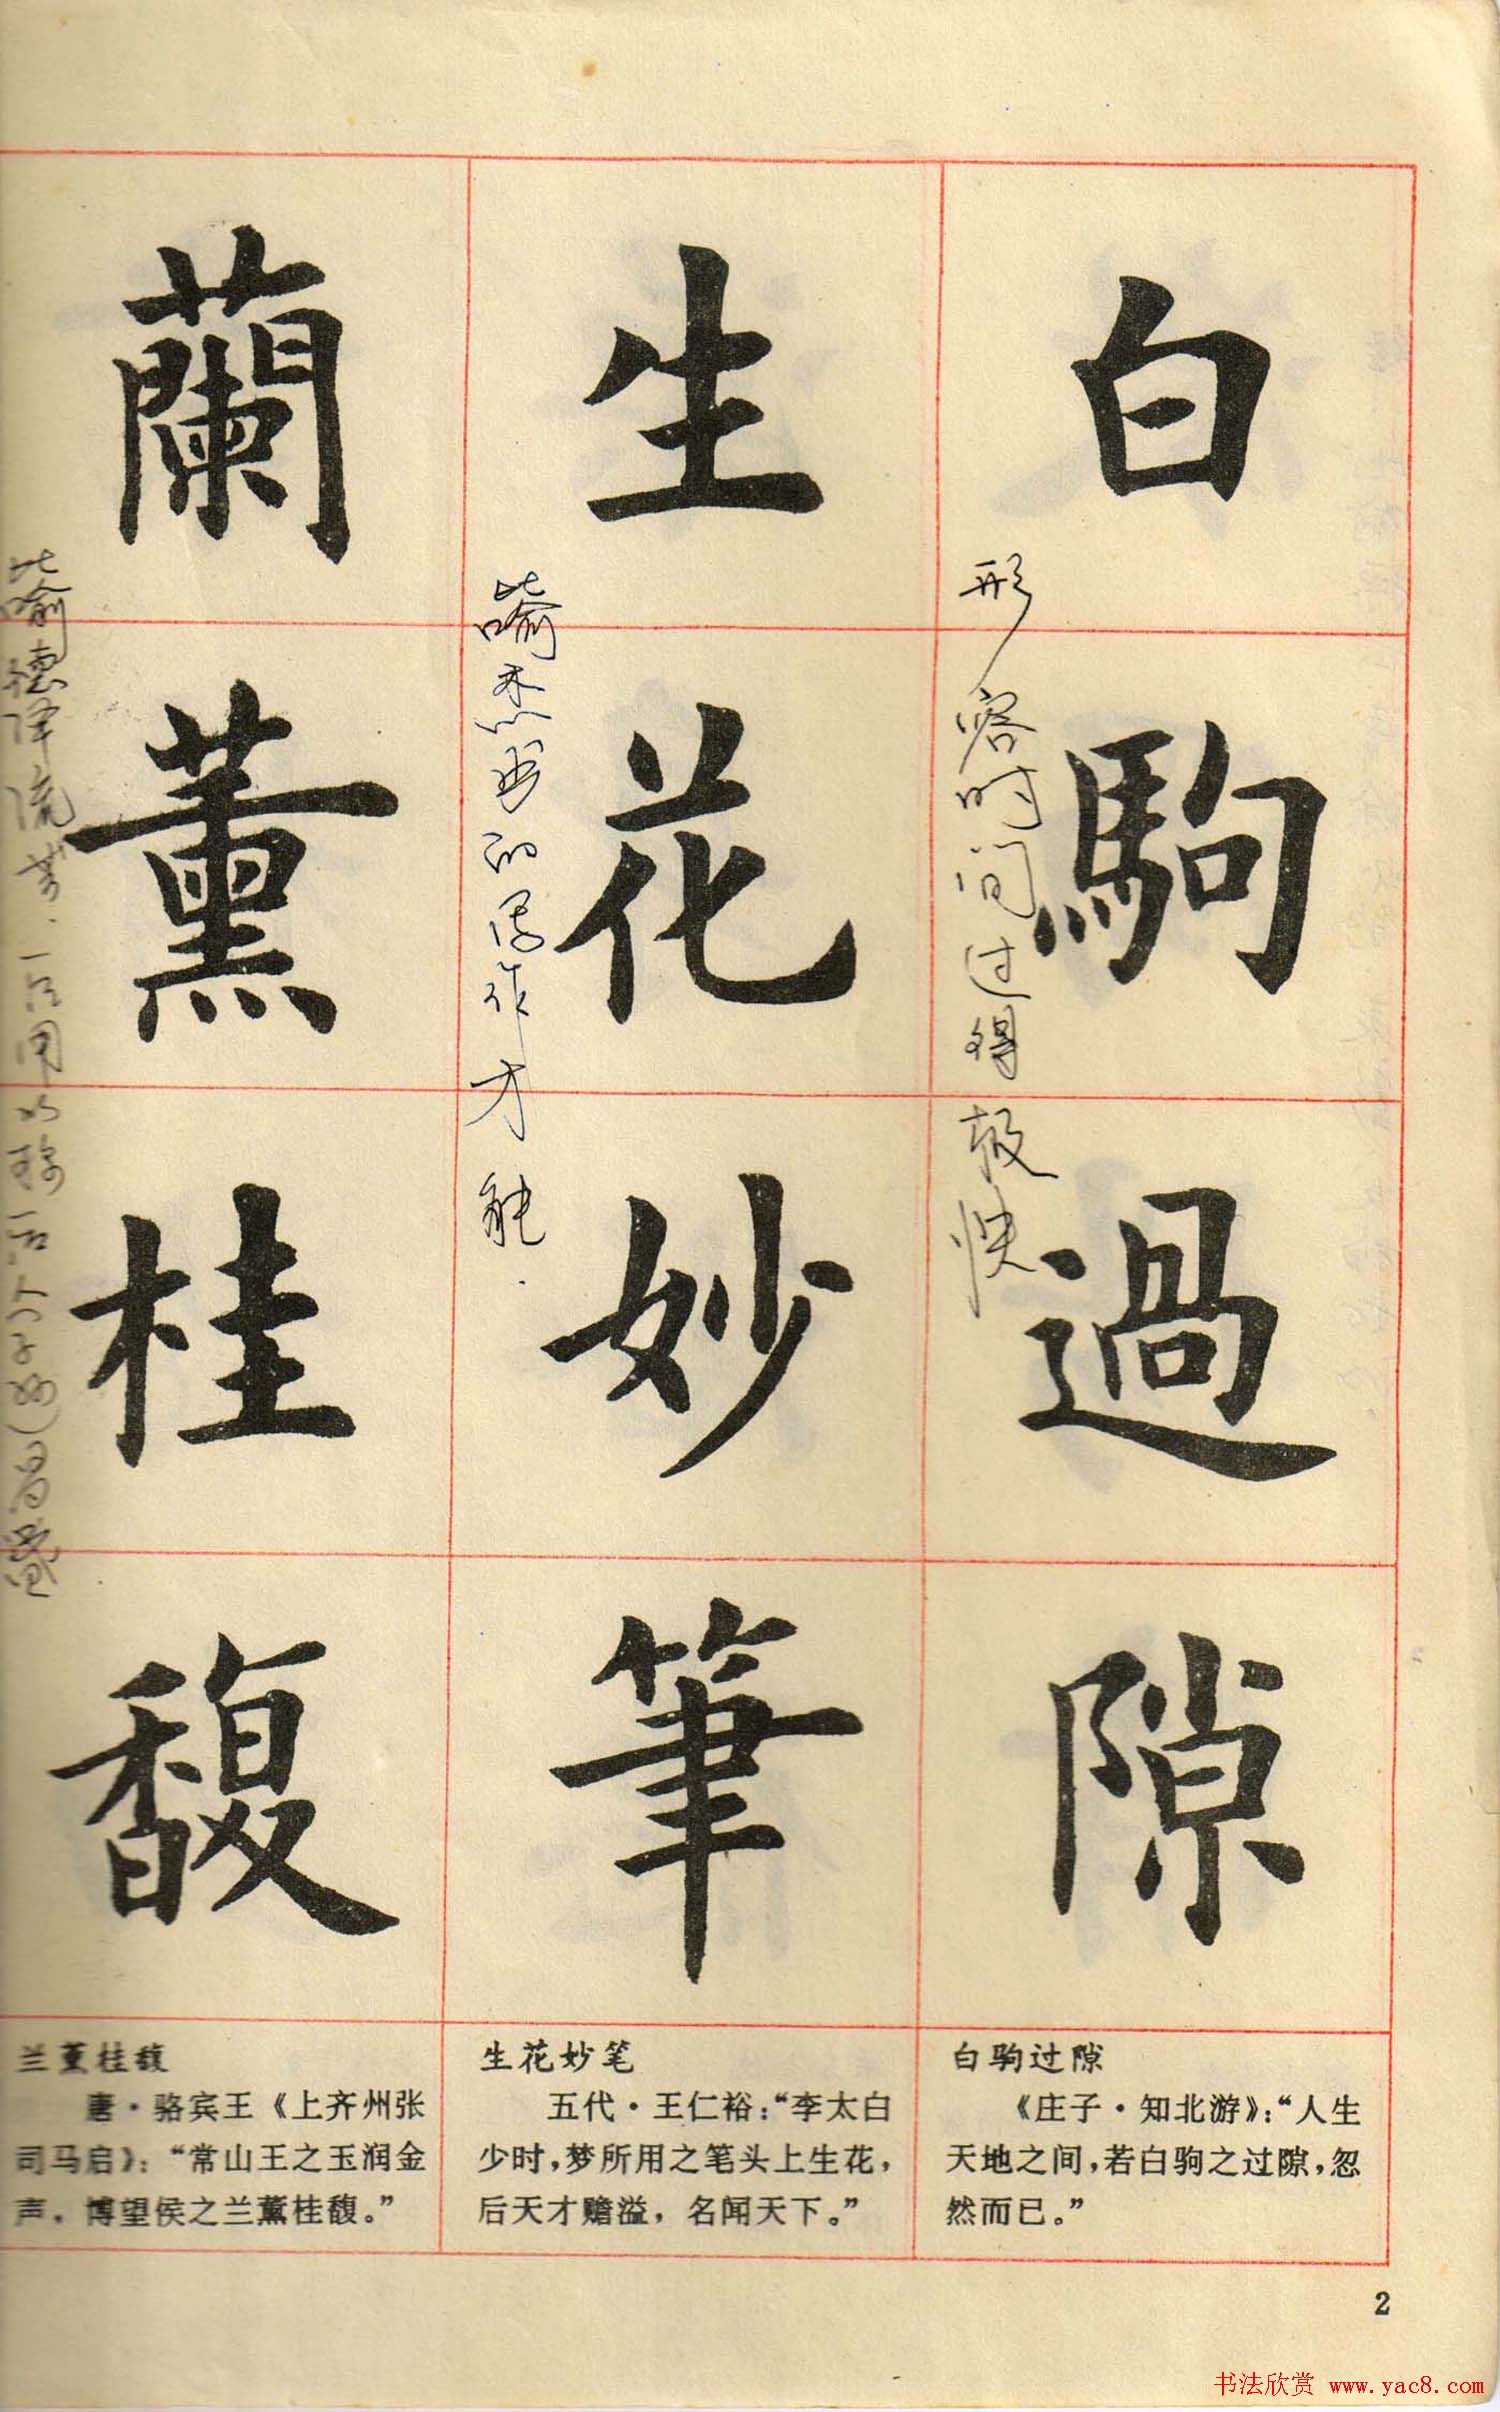 白駒過隙
形容时间过得极快
生花妙筆
比喻杰出的写作才能.
蘭薰桂馥
比喻德泽流芳.一行用以称后人子孙(昌盛
白驹过隙
《庄子·知北游》:“人生
天地之间,若白驹之过隙,忽
然而已。”
生花妙笔
五代·王仁裕:“李太白
少时,梦所用之笔头上生花,
后天才赡溢,名闻天下。”
兰薰桂馥
唐·骆宾王《上齐州张
司马启》:“常山王之玉润金
声,博望侯之兰薰桂馥。”
2
书法欣赏 www.yac8.com